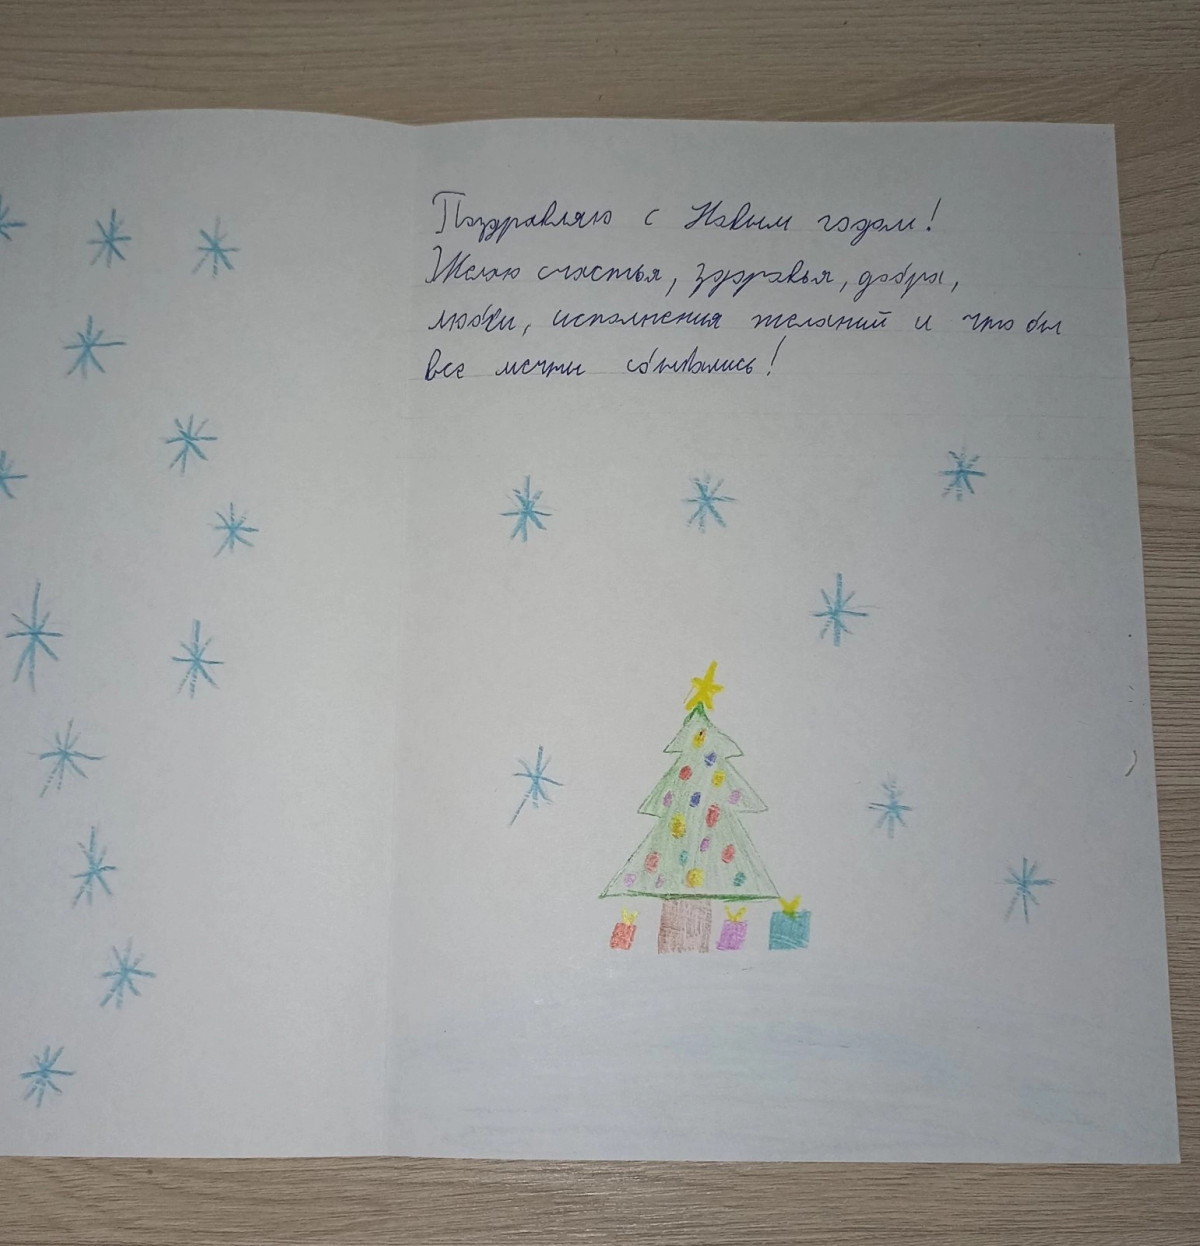 Поздравляю с Новым годом!
Желаю счастья, здоровья, добра,
любви, исполнения желаний и что бы
все мечты сбывались!